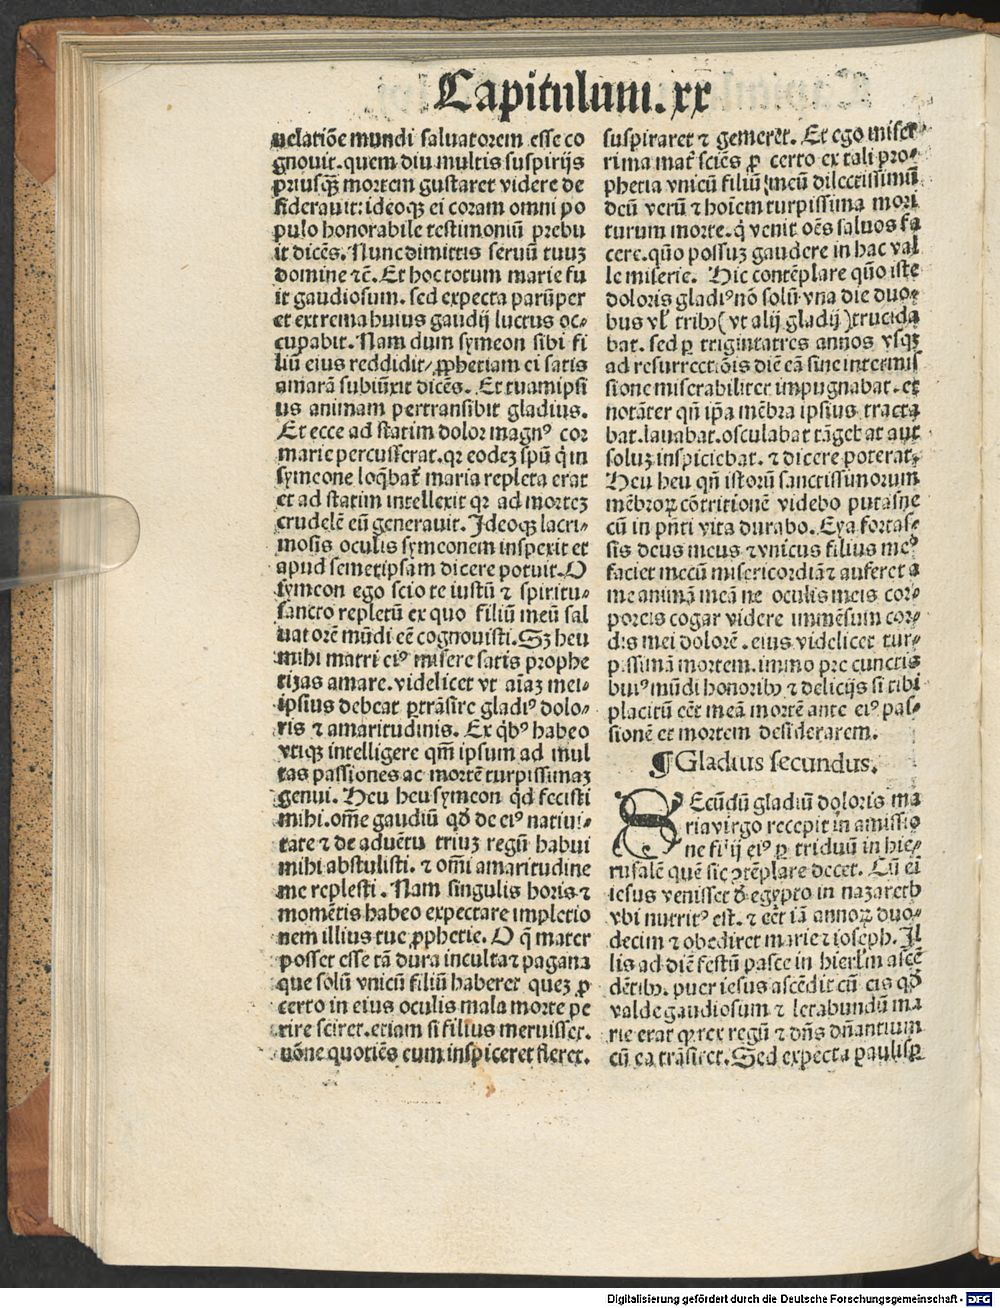 Capitulum. xx
uelatiõe mundi saluatorem esse co
gnouit. quem diu multis suspirijs
priusq̃ȝ mortem gustaret videre de
siderauit: ideoqȝ ei coram omni po
pulo honorabile testimoniũ prebu
it dicẽs. Nunc dimittis seruũ tuuȝ
domine ⁊c̃. Et hoc totum marie fu
it gaudiosum. sed expecta parũper
et extrema huius gaudij luctus oc⸗
cupabit. Nam dum symeon sibi fi
liũ eius reddidit/ ꝓphetiam ei satis
amarã subiũxit dicẽs. Et tuam ipsi
us animam pertransibit gladius.
Et ecce ad statim dolor magnꝰ cor
marie percusserat. qꝛ eodeȝ spũ q̇ in
symeone loq̃bat̃ maria repleta erat
et ad statim intellexit qꝛ ad morteȝ
crudelẽ eũ generauit. Ideoqȝ lacri⸗
mosis oculis symeonem inspexit et
apud semetipsam dicere potuit. O
symeon ego scio te iustũ ⁊ spiritu⸗
sancto repletũ ex quo filiũ meũ sal
uatorẽ mũdi eẽ cognouisti. Sȝ heu
mihi matri eiꝰ misere satis prophe
tizas amare. videlicet vt aĩaȝ mei⸗
ipsius debeat ꝑtrãsire gladiꝰ dolo⸗
ris ⁊ amaritudinis. Ex q̇bꝰ habeo
vtiqȝ intelligere qm̃ ipsum ad mul
tas passiones ac mortẽ turpissimaȝ
genui. Heu heu symeon qd̓ fecisti
mihi. om̃e gaudiũ qđ de eiꝰ natiui⸗
tate ⁊ de aduẽtu triuȝ regũ habui
mihi abstulisti. ⁊ om̃i amaritudine
me replesti. Nam singulis horis ⁊
momẽtis habeo expectare impletio
nem illius tue ꝓphetie. O q̃ mater
posset esse tã dura inculta ⁊ pagana
que solũ vnicũ filiũ haberet queȝ ꝓ
certo in eius oculis mala morte pe
rire sciret. etiam si filius meruisset.
nõne quotiẽs eum inspiceret fleret.
suspiraret ⁊ gemeret. Et ego miser⸗
rima mat̃ sciẽs ꝓ certo ex tali pro⸗
phetia vnicũ filiũ meũ dilectissimũ
deũ verũ ⁊ hoĩem turpissima mori
turum morte. q̇ venit oẽs saluos fa
cere. quõ possuȝ gaudere in hac val
le miserie. Hic contẽplare quõ iste
doloris gladiꝰ nõ solũ vna die duo⸗
bus vl̓ tribȝ (vt alij gladij) trucida
bat. sed ꝑ triginta tres annos vsqȝ
ad resurrectiõis diẽ eã sine intermis
sione miserabiliter impugnabat. et
notãter qñ ip̃a mẽbra ipsius tracta
bat. lauabat. osculabat tãgebat aut
soluȝ inspiciebat. ⁊ dicere poterat.
Heu heu qñ istorũ sanctissimorum
mẽbroꝝ cõtritionẽ videbo putasne
cũ in pñti vita durabo. Eya fortas⸗
sis deus meus ⁊ vnicus filius meꝰ
faciet mecũ misericordiã ⁊ auferet a
me animã meã ne oculis meis cor⸗
poreis cogar videre immẽsum cor⸗
dis mei dolorẽ. eius videlicet tur⸗
pissimã mortem. immo pre cunctis
huiꝰ mũdi honoribȝ ⁊ delicijs si tibi
placitũ eẽt meã mortẽ ante eiꝰ pas⸗
sionẽ et mortem desiderarem.
¶ Gladius secundus.
SEcũdũ gladiũ doloris ma
ria virgo recepit in amissio
ne filij eiꝰ ꝑ triduũ in hie⸗
rusalẽ quẽ sic ꝯtẽplare decet. Cũ ei
iesus venisset đ egypto in nazareth
vbi nutritꝰ est. ⁊ eẽt iã annoꝝ duo⸗
decim ⁊ obediret marie ⁊ ioseph. Il
lis ad diẽ festũ pasce in hierl̓m ascẽ
dẽtibȝ. puer iesus ascẽdit cũ eis qđ
valde gaudiosum ⁊ letabundũ ma
rie erat qꝛ rex regũ ⁊ dñs dñantium
cũ ea trãsiret. Sed expecta paulisꝑ
Digitalisierung gefördert durch die Deutsche Forschungsgemeinschaft - DFG